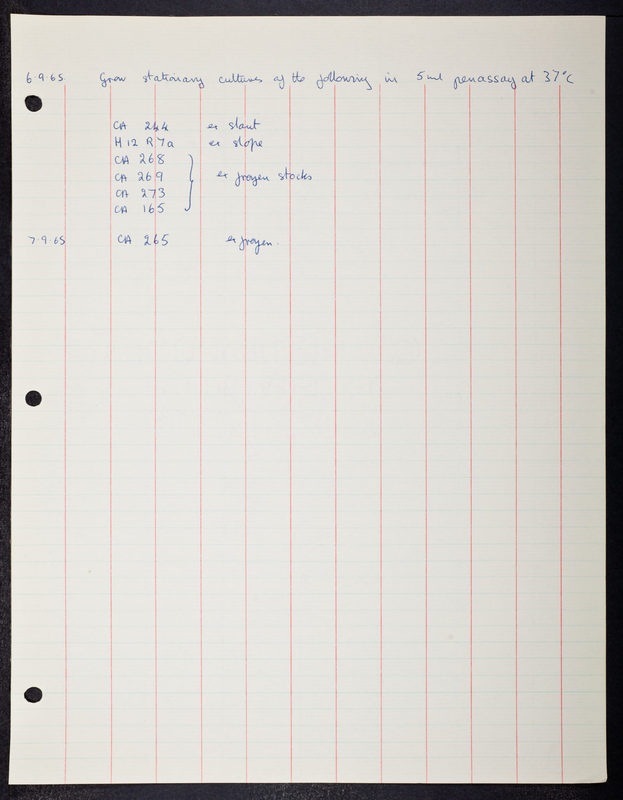 6.9.65 Grow stationary cultures of the following in 5ml penassay at 37°C
CA 244 ex slant
H12 R7a ex slope
CA 268
CA 269 ex frozen stocks
CA 273
CA 165
7.9.65 CA 265 ex frozen.